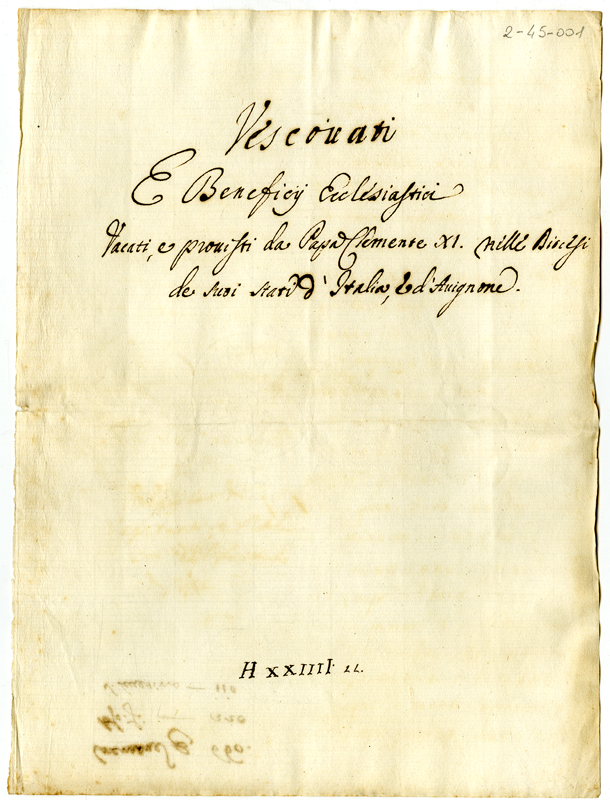 2-45-001
Vescovati
E Beneficij Ecclesiastici
Vacati, e prouisti da Papa Clemente XI. nelle Diocesi
de suoi stati d'Italia, e d'Auignone.
H XXIIII
660.